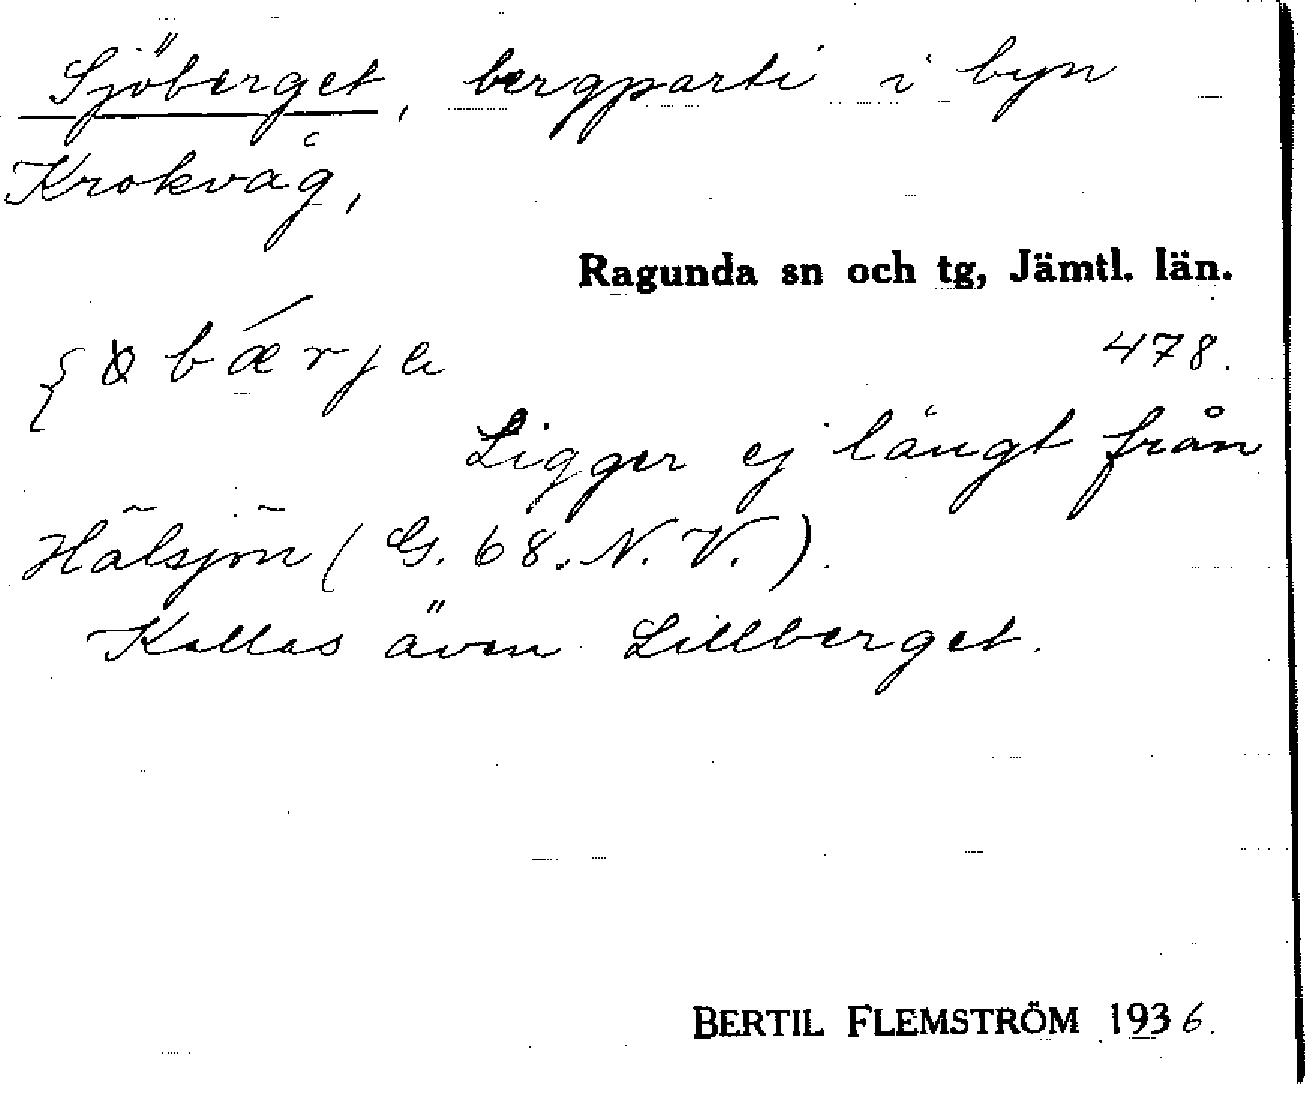 Sjöberget, bergparti i byn
Krokvåg,
Ragunda sn och tg, Jämtl. län.
bǽrje 478.
Ligger ej långt från
Hälsjön (G. 68. N. V.)
Kallas även Lillberget.
BERTIL FLEMSTRÖM 1936.